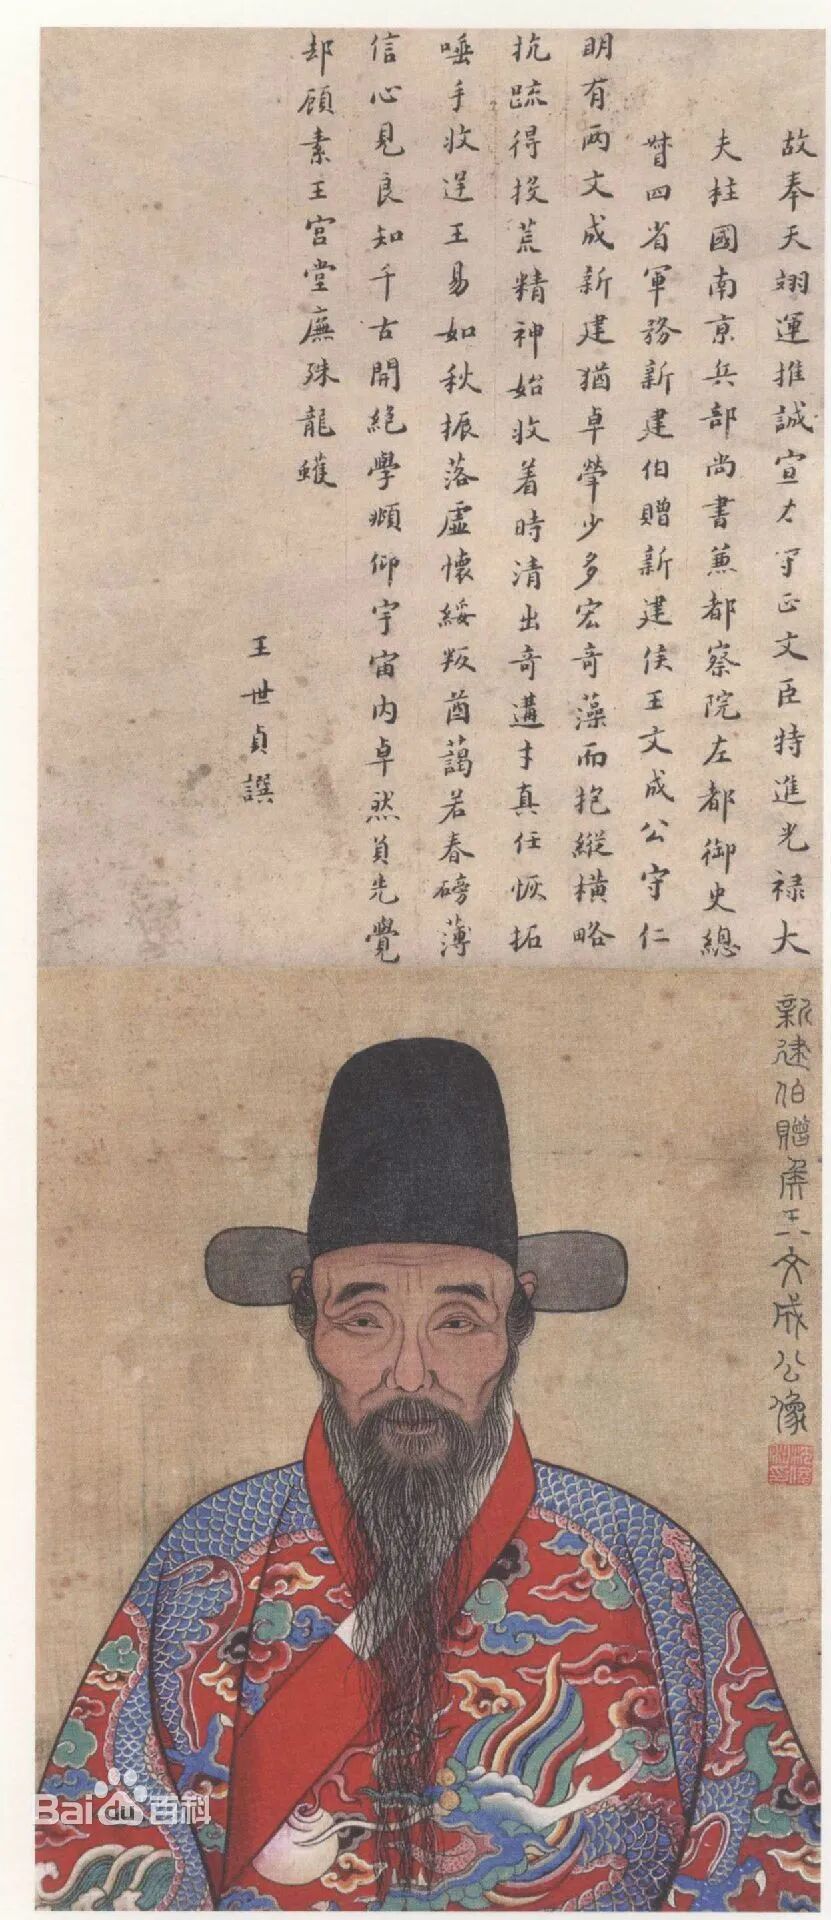 故奉天翊運推誠宣力守正文臣特進光禄大
夫柱國南京兵部尚書兼都察院左都御史總
督四省軍務新建伯贈新建侯王文成公守仁
明有两文成新建猶卓犖少多宏奇藻而抱縱横略
抗疏得投荒精神始收着時清出奇遘才真任恢拓
唾手收逆王易如秋振落虚懷綏叛酋藹若春磅薄
信心見良知千古開絶學頫仰宇宙内卓然負先覺
却顧素王宮堂廡殊龍蠖
王世貞譔
新建伯贈侯王文成公像
Baidu百科